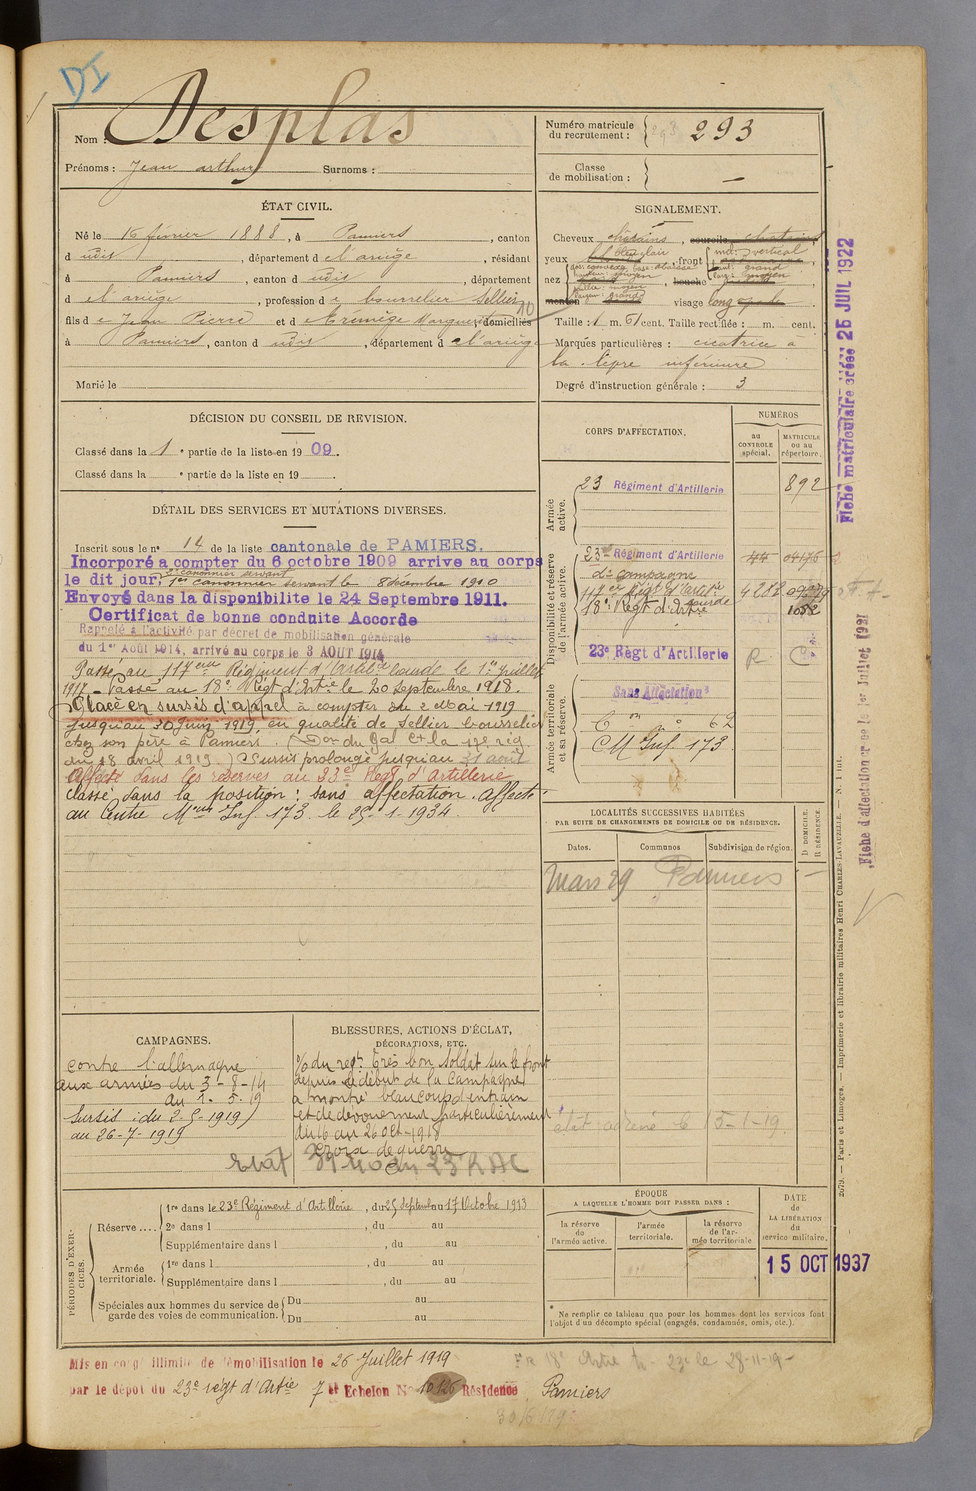 DI
Nom : Desplas
Prénoms : Jean arthur Surnoms :
Numéro matricule du recrutement : 293
Classe de mobilisation : —
ÉTAT CIVIL.
Né le 16 février 1888, à Pamiers, canton
d udit, département de l'ariège, résidant
à Pamiers, canton d udit, département
d e l'ariège, profession d e bourrelier Sellier
fils d e Jean Pierre et d domiciliés
à Pamiers, canton d udit, département d e l'ariège
Marié le
SIGNALEMENT.
Cheveux châtains, sourcils châtains
yeux, front vertical
nez, bouche
menton visage long
Taille : 1 m. 61 cent. Taille rectifiée : m. cent.
Marques particulières : cicatrice à
la lèpre inférieure
Degré d'instruction générale : 3
DÉCISION DU CONSEIL DE REVISION.
Classé dans la 1e partie de la liste en 1909.
Classé dans la e partie de la liste en 19
DÉTAIL DES SERVICES ET MUTATIONS DIVERSES.
Inscrit sous le n° 14 de la liste cantonale de PAMIERS.
Incorporé a compter du 6 octobre 1909 arrive au corps
le dit jour, 1er canonnier servant le 8 décembre 1910
Envoyé dans la disponibilite le 24 Septembre 1911.
Certificat de bonne conduite Accorde
Rappelé à l'activité par décret de mobilisation générale
du 1er Août 1914, arrivé au corps le 3 AOUT 1914
Passé au 117eme Régiment d'Artilie lourde le 1er juillet
1917 - Passé au 18e Régt d'Artie le 20 septembre 1918.
Placé en sursis d'appel à compter du 2 Mai 1919
jusqu'au 30 Juin 1919, en qualité de Sellier bourrelier
chez son père à Pamiers. (Don du Gal Ct la 17e rég
du 18 avril 1919.) Sursis prolongé jusqu'au 31 août
Affecté dans les réserves au 23e Regt d'Artillerie
classé dans la position : sans affectation. Affecté
au Centre Mon Inf. 173 le 25-1-1934.
CORPS D'AFFECTATION.
NUMÉROS
AU CONTROLE spécial.
MATRICULE ou au répertoire.
Armée active.
23 Régiment d'Artillerie 892
Disponibilité et réserve de l'armée active.
23e Régiment d'Artillerie 44
2e compagne
117e Régt d'Artie lourde
18e Régt d'Artie
23e Règt d'Artillerie R
Armée territoriale et sa réserve.
Sans Affectation
CM Inf. 173.
LOCALITÉS SUCCESSIVES HABITÉES
PAR SUITE DE CHANGEMENTS DE DOMICILE OU DE RÉSIDENCE.
Dates. Communes Subdivision de région. D DOMICILE. R RÉSIDENCE
Mars 29 Pamiers
CAMPAGNES.
contre l'allemagne
aux armées du 3-8-14
au 1-5-19
Sursis (du 2-5-1919)
au 26-7-1919
BLESSURES, ACTIONS D'ÉCLAT,
DÉCORATIONS, ETC.
du regt. Très bon soldat sur le front
depuis le début de la Campagne
a montré beaucoup d'entrain
et de dévouement particulièrement
du 16 au 26 oct-1918
Croix de guerre
PÉRIODES D'EXERCICES.
Réserve .... 1re dans le 23e Régiment d'Artillerie, du 25 Septembre au 17 Octobre 1913
2e dans l , du au
Supplémentaire dans l , du au
Armée territoriale. 1re dans l , du au
Supplémentaire dans l , du au
Spéciales aux hommes du service de garde des voies de communication. Du au
Du au
ÉPOQUE
A LAQUELLE L'HOMME DOIT PASSER DANS :
la réserve de l'armée active.
l'armée territoriale.
la réserve de l'armée territoriale
DATE de LA LIBÉRATION du service militaire.
15 OCT 1937
* Ne remplir ce tableau que pour les hommes dont les services font
l'objet d'un décompte spécial (engagés, condamnés, omis, etc.).
Mis en congé illimité de démobilisation le 26 Juillet 1919
par le dépôt du 23e régt d'Artie 7e Echelon No 10126 Résidence Pamiers
Fiche matriculaire créée 25 JUIL 1922
Fiche d'affectation du 1er Juillet 1927
2079. — Paris et Limoges. — Imprimerie et librairie militaires Henri CHARLES-LAVAUZELLE. — N. 1 int.